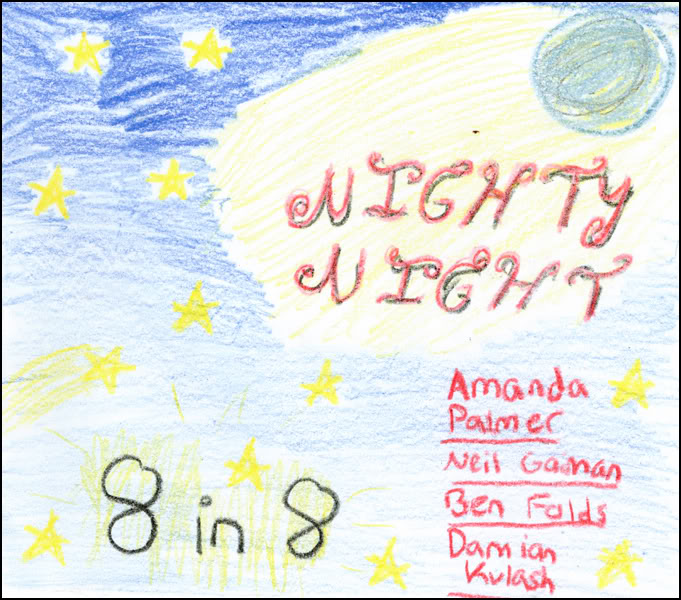 NIGHTY
NIGHT
Amanda
Palmer
Neil Gaiman
Ben Folds
Damian
Kulash
8 in 8